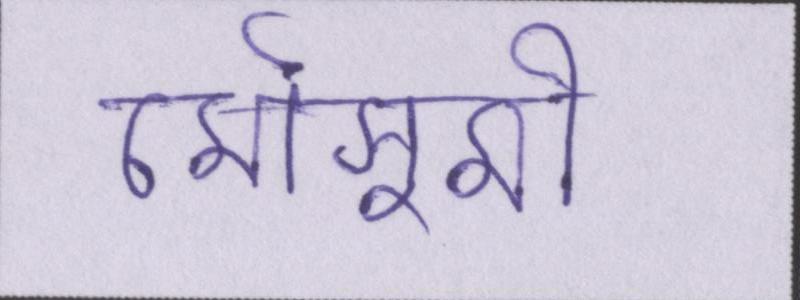 মৌসুমী